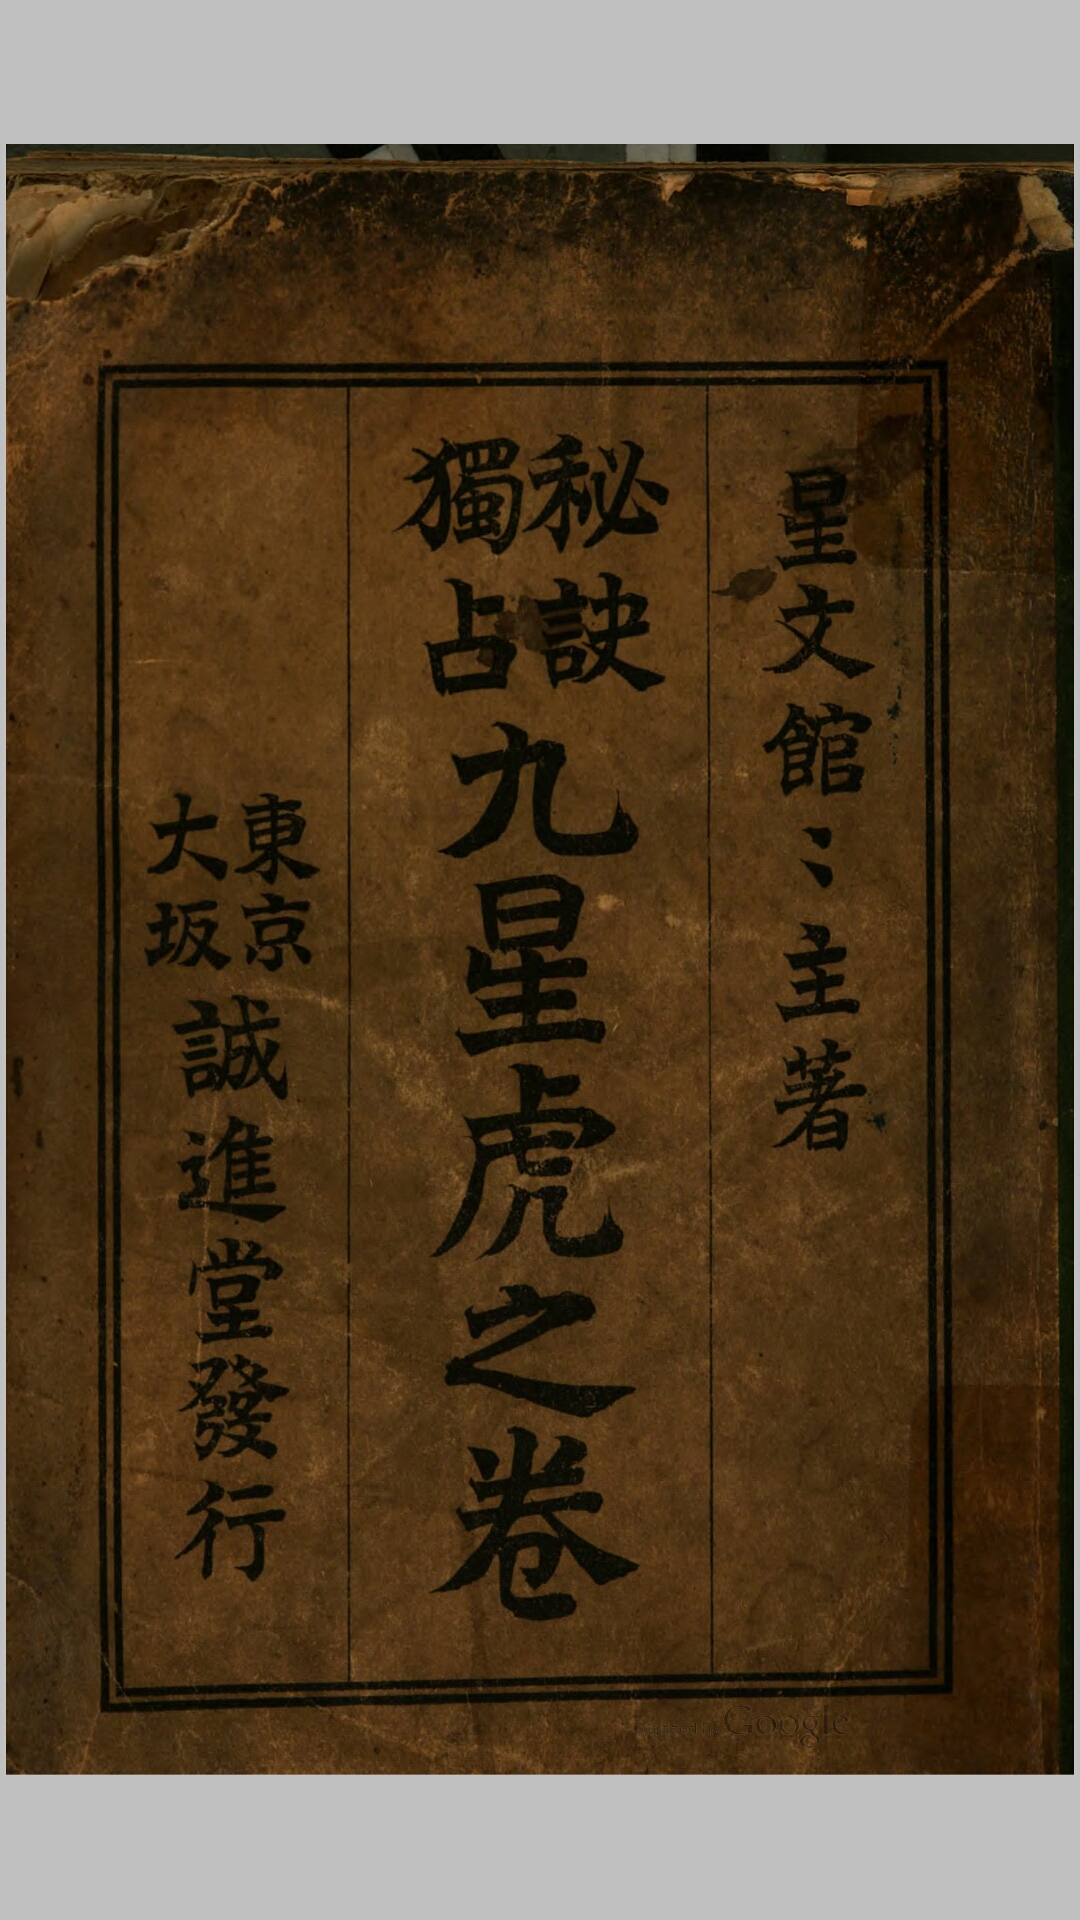 星文館〻主著
秘訣
獨占
九星虎之卷
東京
大坂
誠進堂發行
Digitized by Google